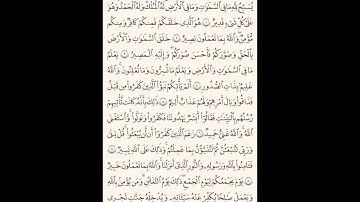 يُسَبِّحُ لِلَّهِ مَا فِي السَّمَٰوَٰتِ وَمَا فِي الْأَرْضِ لَهُ الْمُلْكُ وَلَهُ الْحَمْدُ وَهُوَ
عَلَىٰ كُلِّ شَيْءٍ قَدِيرٌ ١ هُوَ الَّذِي خَلَقَكُمْ فَمِنكُمْ كَافِرٌ وَمِنكُم
مُّؤْمِنٌ وَاللَّهُ بِمَا تَعْمَلُونَ بَصِيرٌ ٢ خَلَقَ السَّمَٰوَٰتِ وَالْأَرْضَ
بِالْحَقِّ وَصَوَّرَكُمْ فَأَحْسَنَ صُوَرَكُمْ وَإِلَيْهِ الْمَصِيرُ ٣ يَعْلَمُ
مَا فِي السَّمَٰوَٰتِ وَالْأَرْضِ وَيَعْلَمُ مَا تُسِرُّونَ وَمَا تُعْلِنُونَ وَاللَّهُ
عَلِيمٌ بِذَاتِ الصُّدُورِ ٤ أَلَمْ يَأْتِكُمْ نَبَؤُا الَّذِينَ كَفَرُوا مِن قَبْلُ
فَذَاقُوا وَبَالَ أَمْرِهِمْ وَلَهُمْ عَذَابٌ أَلِيمٌ ٥ ذَٰلِكَ بِأَنَّهُ كَانَت تَّأْتِيهِمْ
رُسُلُهُم بِالْبَيِّنَٰتِ فَقَالُوا أَبَشَرٌ يَهْدُونَنَا فَكَفَرُوا وَتَوَلَّوا وَّاسْتَغْنَى
اللَّهُ وَاللَّهُ غَنِيٌّ حَمِيدٌ ٦ زَعَمَ الَّذِينَ كَفَرُوا أَن لَّن يُبْعَثُوا قُلْ بَلَىٰ
وَرَبِّي لَتُبْعَثُنَّ ثُمَّ لَتُنَبَّؤُنَّ بِمَا عَمِلْتُمْ وَذَٰلِكَ عَلَى اللَّهِ يَسِيرٌ ٧
فَـَٔامِنُوا بِاللَّهِ وَرَسُولِهِ وَالنُّورِ الَّذِي أَنزَلْنَا وَاللَّهُ بِمَا تَعْمَلُونَ خَبِيرٌ
٨ يَوْمَ يَجْمَعُكُمْ لِيَوْمِ الْجَمْعِ ذَٰلِكَ يَوْمُ التَّغَابُنِ وَمَن يُؤْمِن بِاللَّهِ
وَيَعْمَلْ صَٰلِحًا يُكَفِّرْ عَنْهُ سَيِّـَٔاتِهِ وَيُدْخِلْهُ جَنَّٰتٍ تَجْرِي